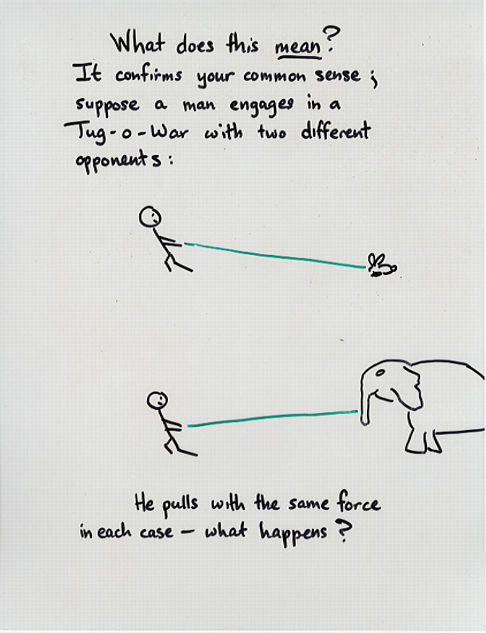 What does this mean?
It confirms your common sense;
suppose a man engages in a
Tug-o-War with two different
opponents:
He pulls with the same force
in each case - what happens?